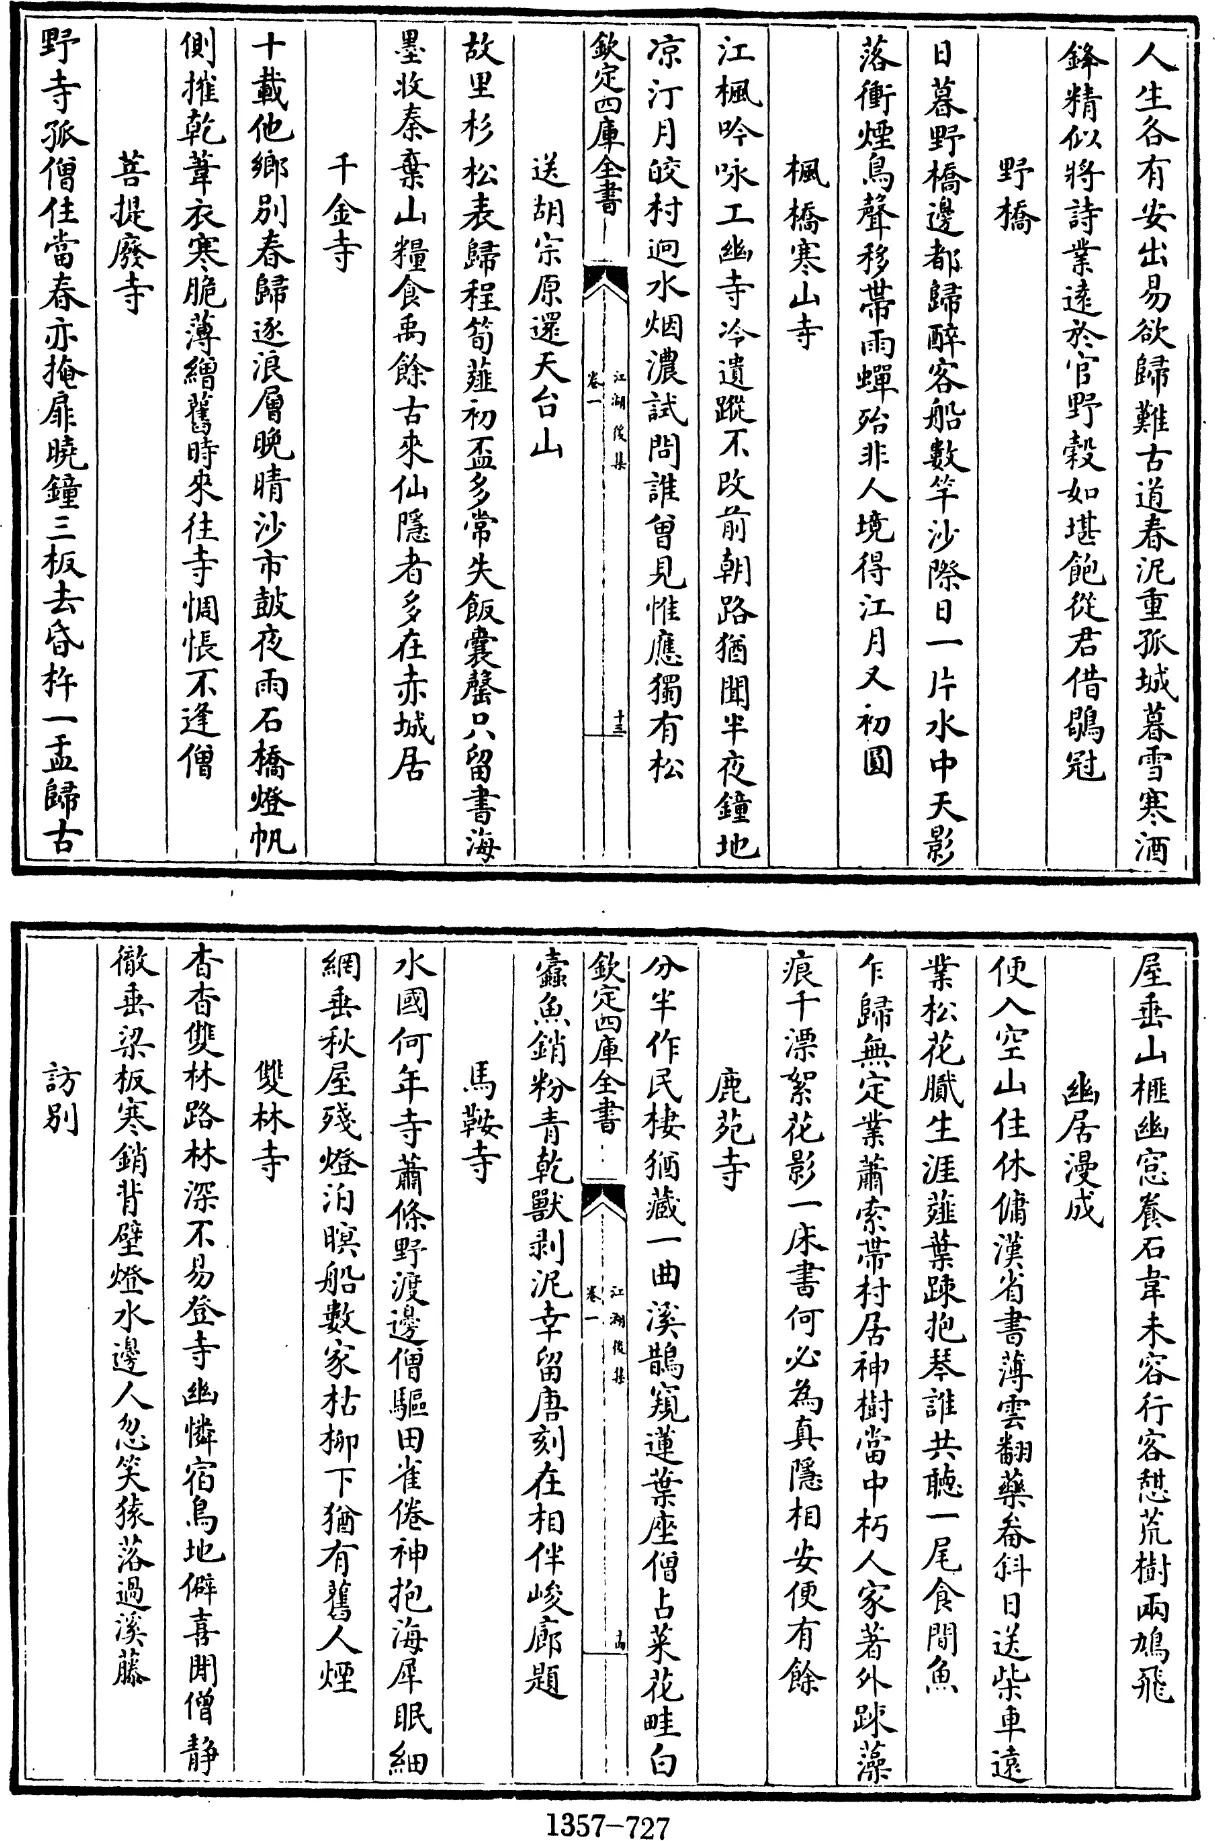 人生各有安出易欲歸難古道春泥重孤城暮雪寒酒
鋒精似將詩業遠於官野穀如堪飽從君借鶡冠
野橋
日暮野橋邊都歸醉客船數竿沙際日一片水中天影
落衝煙鳥聲移帶雨蟬殆非人境得江月又初圓
楓橋寒山寺
江楓吟咏工幽寺冷遺蹤不改前朝路猶聞半夜鐘地
凉汀月皎村逈水烟濃試問誰曾見惟應獨有松
欽定四庫全書
江湖後集
卷一
十三
送胡宗原還天台山
故里杉松表歸程筍薤初盃多常失飯囊罄只留書海
墨收秦棄山糧食禹餘古來仙隱者多在赤城居
千金寺
十載他鄉別春歸逐浪層晚晴沙市鼓夜雨石橋燈帆
側摧乾葦衣寒脆薄繒舊時來往寺惆悵不逢僧
菩提廢寺
野寺孤僧住當春亦掩扉曉鐘三板去昏杵一盂歸古
屋垂山榧幽窓養石韋未容行客憇荒樹兩鳩飛
幽居漫成
便入空山住休傭漢省書薄雲翻藥畚斜日送柴車遠
業松花臘生涯薤葉踈抱琴誰共聽一尾食間魚
乍歸無定業蕭索帶村居神樹當中朽人家著外踈藻
痕千漂絮花影一床書何必為真隱相安便有餘
鹿苑寺
分半作民棲猶藏一曲溪鵲窺蓮葉座僧占菜花畦白
欽定四庫全書
江湖後集
卷一
十四
蠹魚銷粉青乾獸剥泥幸留唐刻在相伴峻廊題
馬鞍寺
水國何年寺蕭條野渡邊僧驅田雀倦神抱海犀眠細
網垂秋屋殘燈泊暝船數家枯柳下猶有舊人煙
雙林寺
杳杳雙林路林深不易登寺幽憐宿鳥地僻喜閒僧静
徹垂梁板寒銷背壁燈水邊人忽笑猿落過溪藤
訪別
1357-727